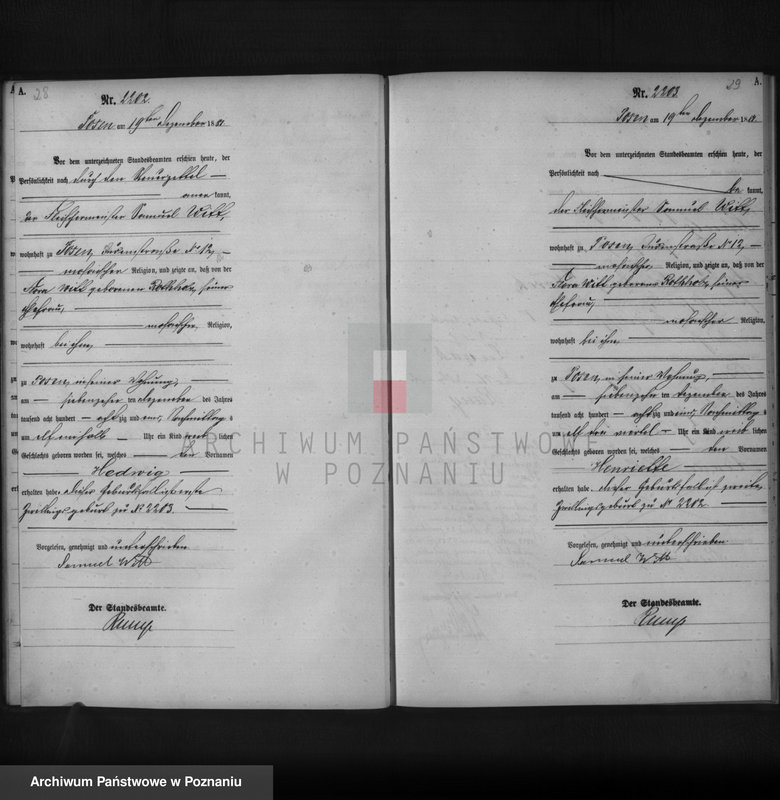 A. 28
Nr. 2202.
Posen am 19ten Dezember 1881.
Vor dem unterzeichneten Standesbeamten erschien heute, der
Persönlichkeit nach durch den
aner kannt,
der Samuel Witt,
wohnhaft zu Posen, Judenstraße No 12,
mosaischer Religion, und zeigte an, daß von der
Flora Witt geborenen Rothholz, seiner
Ehefrau,
mosaischer Religion,
wohnhaft bei ihm
zu Posen, in seiner Wohnung,
am siebenzehnten Dezember des Jahres
tausend acht hundert achtzig und eins, Vormittags
um elf einhalb Uhr ein Kind weiblichen
Geschlechts geboren worden sei, welches den Vornamen
Hedwig
erhalten habe. dieser Geburtsfall ist erste
Zwillingsgeburt zu No 2203.
Vorgelesen, genehmigt und unterschrieben
Samuel Witt
Der Standesbeamte.
29 A.
Nr. 2203.
Posen am 19ten Dezember 1881.
Vor dem unterzeichneten Standesbeamten erschien heute, der
Persönlichkeit nach
be kannt,
der Samuel Witt,
wohnhaft zu Posen, Judenstraße No 12,
mosaischer Religion, und zeigte an, daß von der
Flora Witt geborenen Rothholz, seiner
Ehefrau,
mosaischer Religion,
wohnhaft bei ihm
zu Posen, in seiner Wohnung,
am siebenzehnten Dezember des Jahres
tausend acht hundert achtzig und eins, Vormittags
um elf drei viertel Uhr ein Kind weiblichen
Geschlechts geboren worden sei, welches den Vornamen
Henriette
erhalten habe. dieser Geburtsfall ist zweite
Zwillingsgeburt zu No 2202.
Vorgelesen, genehmigt und unterschrieben
Samuel Witt
Der Standesbeamte.
ARCHIWUM PAŃSTWOWE
W POZNANIU
Archiwum Państwowe w Poznaniu